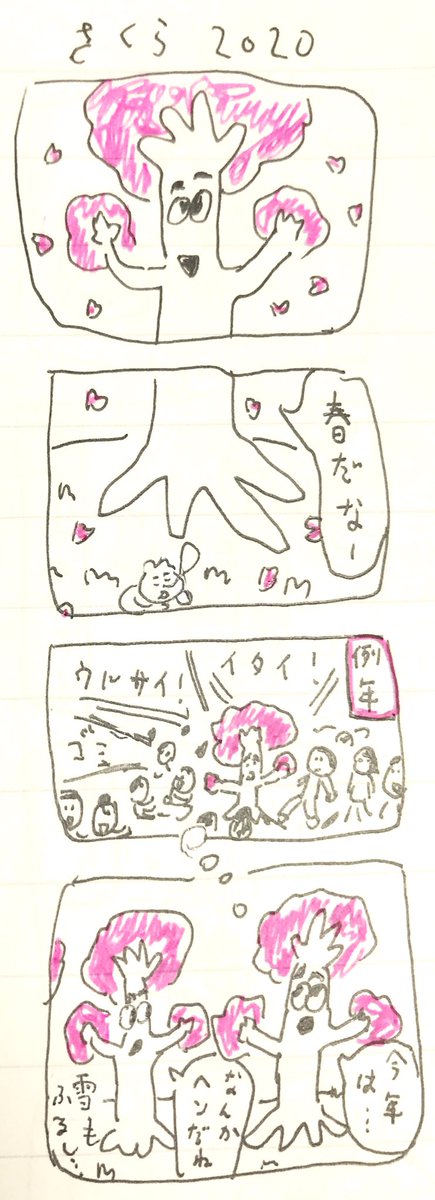 さくら 2020
春だなー
例年
イタイ!
ウルサイ!
ゴミ
今年
は…
なんか
ヘンだね
雪も
ふるし…